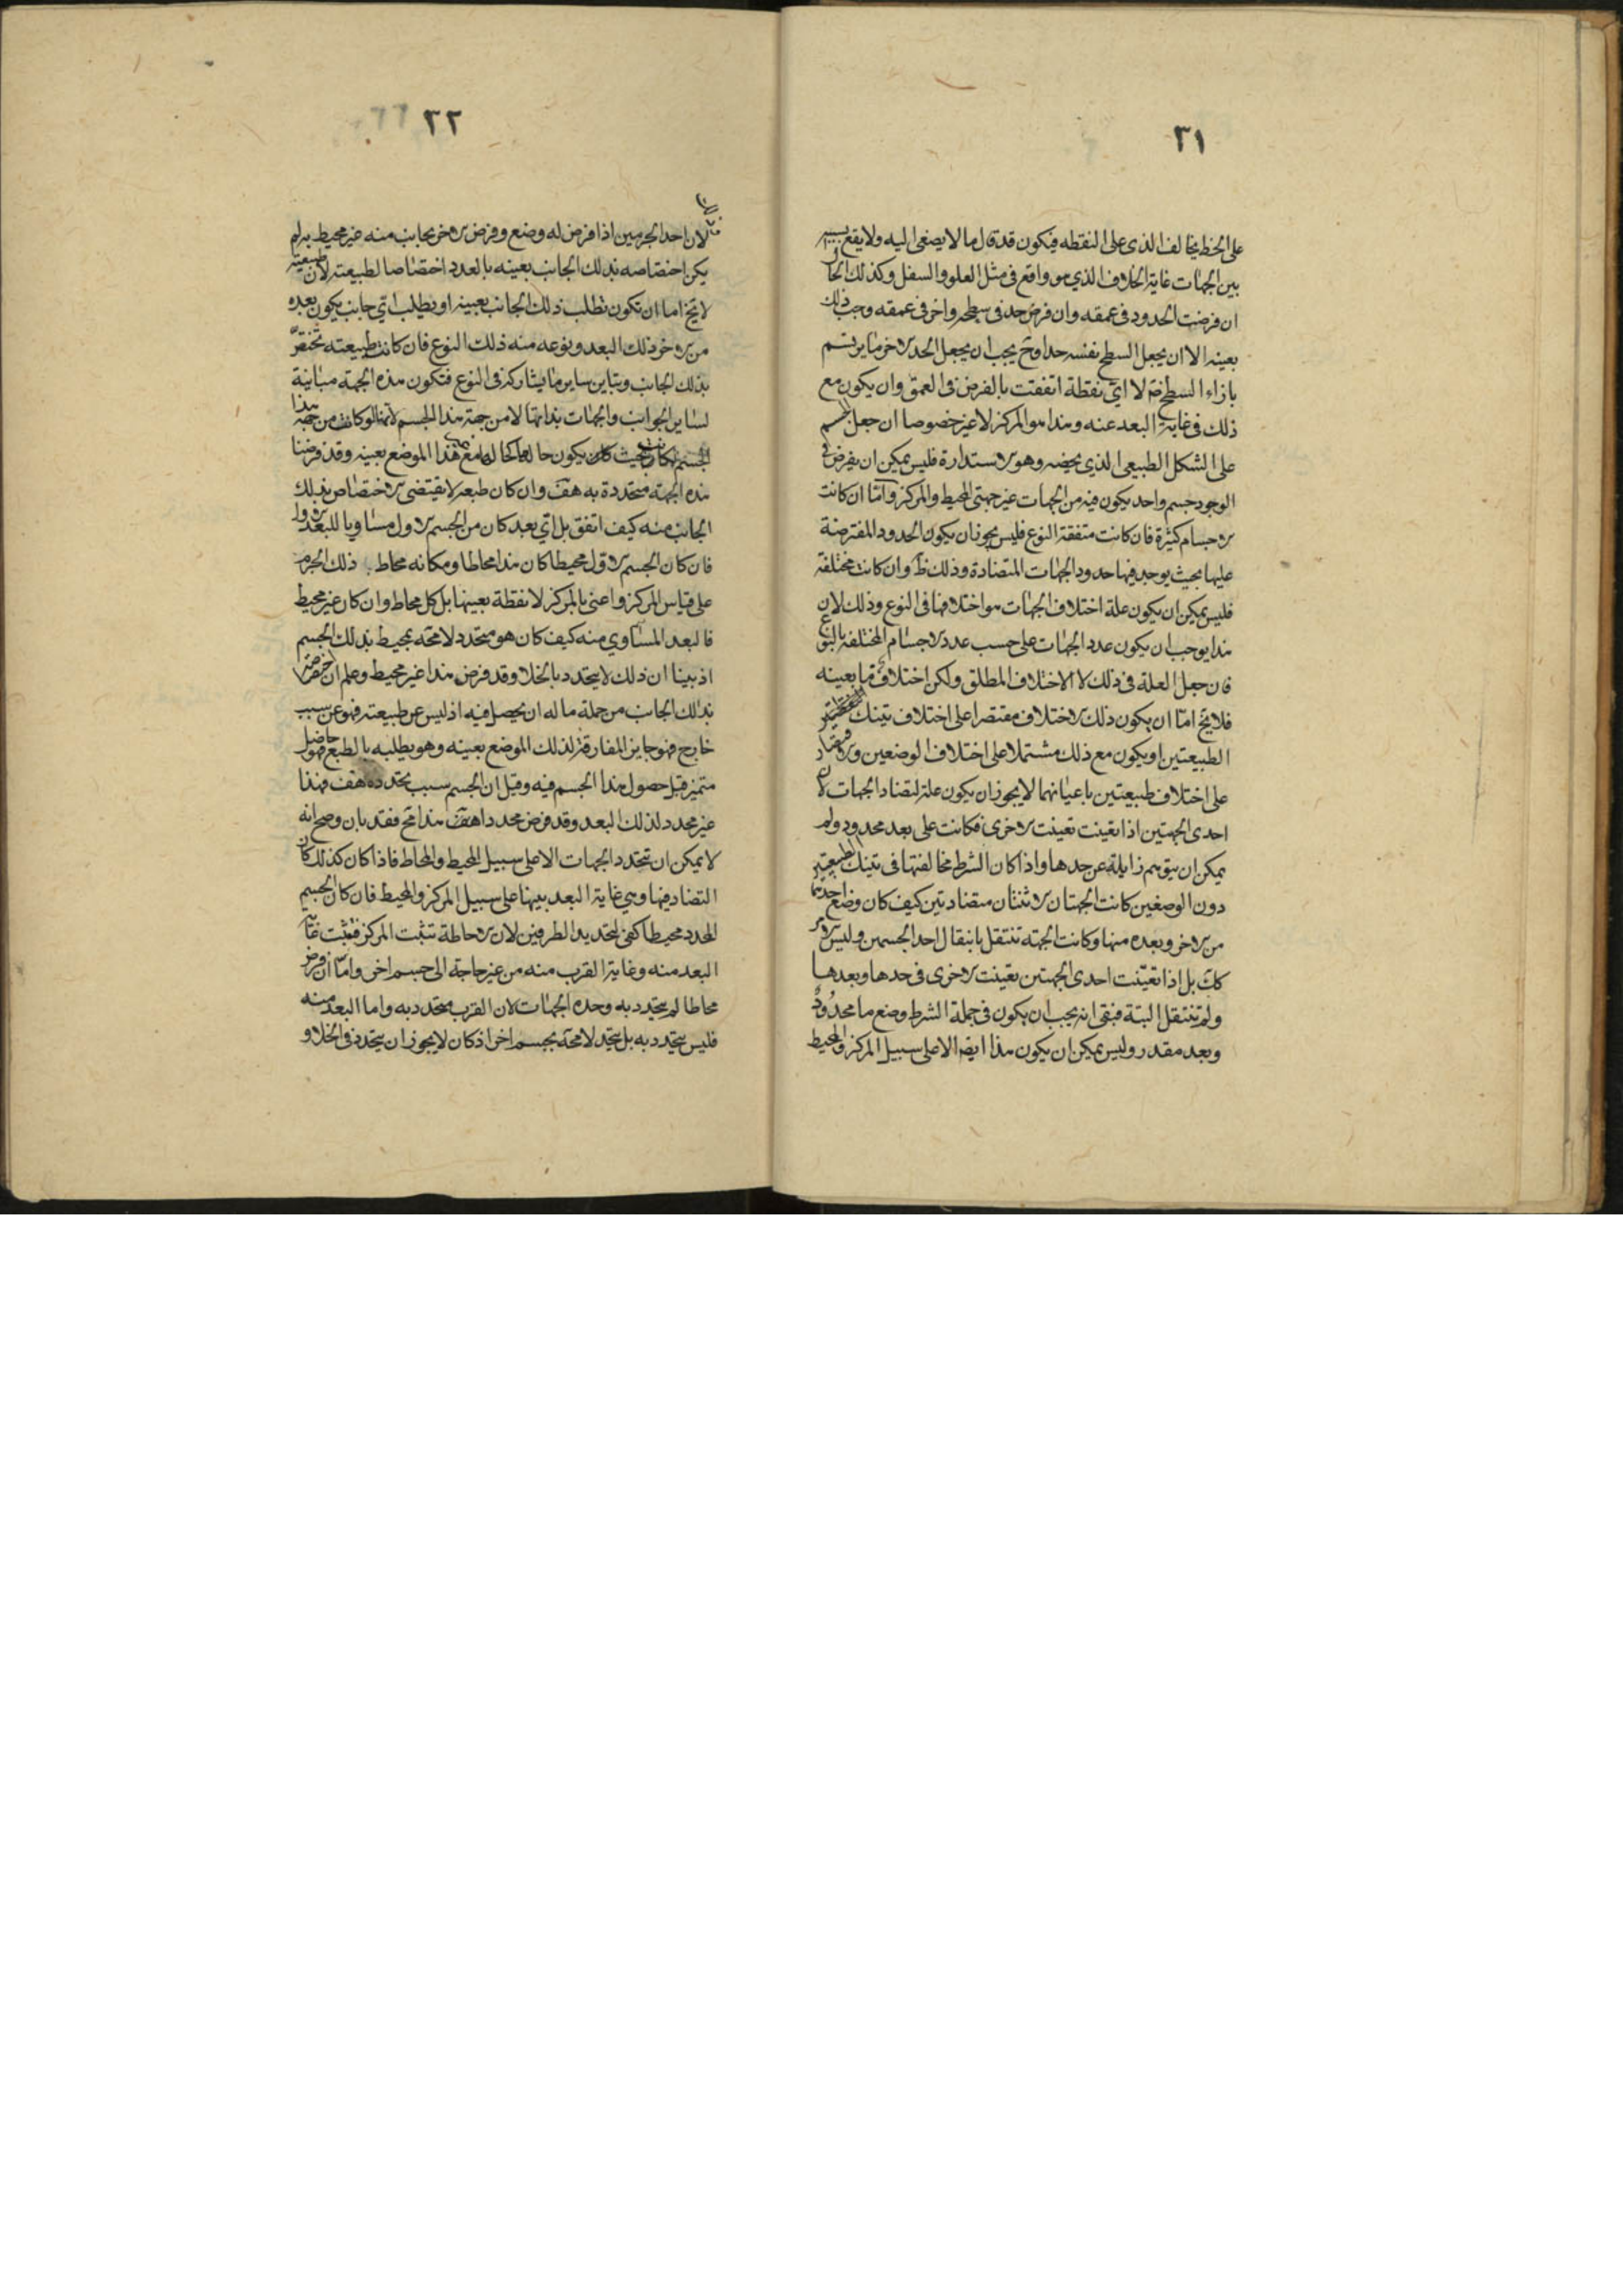 ٣١
على الخط يخالف الذى على النقطه فيكون قد قال ما لا يصغى اليه ولا يقع
بين الجهات غاية الخلاف الذي هو واقع فى مثل العلو والسفل وكذلك الحال
ان فرضت الحدود فى عمقه وان فرض حد فى سطحه واخر فى عمقه وجب ذلك
بعينه الا ان يجعل السطح نفسه حدا وح يجب ان يجعل الحد الاخر ما يرتسم
بازاء السطح لا اى نقطة اتفقت بالفرض فى العمق وان يكون مع
ذلك فى غاية البعد عنه وهذا هو المركز لا غير خصوصا ان جعل الجسم
على الشكل الطبيعى الذي يخصه وهو الاستدارة فليس يمكن ان يفرض فى
الوجود جسم واحد يكون فيه من الجهات غير جهتى المحيط والمركز واما ان كانت
الاجسام كثيرة فان كانت متفقة النوع فليس يجوز ان يكون الحدود المفترضة
عليها بحيث يوجد فيها حدود الجهات المتضادة وذلك ظ وان كانت مختلفة
فليس يمكن ان يكون علة اختلاف الجهات هو اختلافها فى النوع وذلك لان
هذا يوجب ان يكون عدد الجهات على حسب عدد الاجسام المختلفه بالنوع
فان جعل العلة فى ذلك لا الاختلاف المطلق ولكن اختلاف ما بعينه
فلا يخ اما ان يكون ذلك الاختلاف مقتصرا على اختلاف تينك
الطبيعتين او يكون مع ذلك مشتملا على اختلاف الوضعين
على اختلاف طبيعتين باعيانهما لا يجوز ان يكون علة لتضاد الجهات لان
احدى الجهتين اذا تعينت تعينت الاخرى فكانت على بعد محدود ولم
يمكن ان يتوهم زايلة عن حدها واذا كان الشرط مخالفتها فى تينك الطبيعتين
دون الوضعين كانت الجهتان الاثنتان متضادتين كيف كان وضع احديهما
من الاخر وبعده منها وكانت الجهة تنتقل بانتقال احد الجسمين وليس الامر
كك بل اذا تعيّنت احدى الجهتين تعينت الاخرى فى حدها وبعدها
ولم تنتقل البتة فبقى انه يجب ان يكون فى جملة الشرط وضع ما محدود
وبعد مقدر وليس يمكن ان يكون هذا ايضا الا على سبيل المركز والمحيط
٣٢
لان احد الجرمين اذا فرض له وضع وفرض الاخر بجانب منه غير محيط به لم
يكن اختصاصه بذلك الجانب بعينه بالعدد اختصاصا لطبيعته لان طبيعته
لا يخ اما ان تكون تطلب ذلك الجانب بعينه او يطلب اى جانب يكون بعده
من الاخر ذلك البعد ونوعه منه ذلك النوع فان كانت طبيعته تختص
بذلك الجانب ويتباين ساير ما يشاركه فى النوع فتكون هذه الجهة مباينة
لساير الجوانب والجهات بذاتها لا من جهة هذا الجسم لانها لو كانت من جهة هذا
الجسم لكانت بحيث كان يكون حالها مع هذا الموضع بعينه وقد فرضنا
هذه الجهة متحددة به هف وان كان طبعه لا يقتضى الاختصاص بذلك
الجانب منه كيف اتفق بل اى بعد كان من الجسم الاول مساويا للبعد الاول
فان كان الجسم الاول محيطا كان هذا محاطا ومكانه محاط ذلك الجرم
على قياس المركز واعنى بالمركز لا نقطة بعينها بل كل محاط وان كان غير محيط
فالبعد المساوي منه كيف كان هو متحدد لا محة بمحيط بذلك الجسم
اذ بينا ان ذلك لا يتحدد بالخلا وقد فرض هذا غير محيط وعلم ان اختصاصه
بذلك الجانب من جملة ما له ان يحصل فيه اذ ليس عن طبيعته فهو عن سبب
خارج فهو جايز المفارقة لذلك الموضع بعينه وهو يطلبه بالطبع فهو حاصل
متميز قبل حصول هذا الجسم فيه وقيل ان الجسم سبب تحدده هف فهذا
غير محدد لذلك البعد وقد فرض محددا هف هذا مح فقد بان وصح انه
لا يمكن ان تتحدد الجهات الا على سبيل المحيط والمحاط فاذا كان كذلك كان
التضاد فيها وهي غاية البعد بينها على سبيل المركز والمحيط فان كان الجسم
المحدد محيطا كفى لتحديد الطرفين لان الاحاطة تثبت المركز فتثبت غاية
البعد منه وغاية القرب منه من غير حاجة الى جسم اخر واما ان فرض
محاطا لم يتحدد به وحده الجهات لان القرب يتحدد به واما البعد منه
فليس يتحدد به بل يتحدد لا محة بجسم اخر اذ كان لا يجوز ان يتحدد فى الخلاو